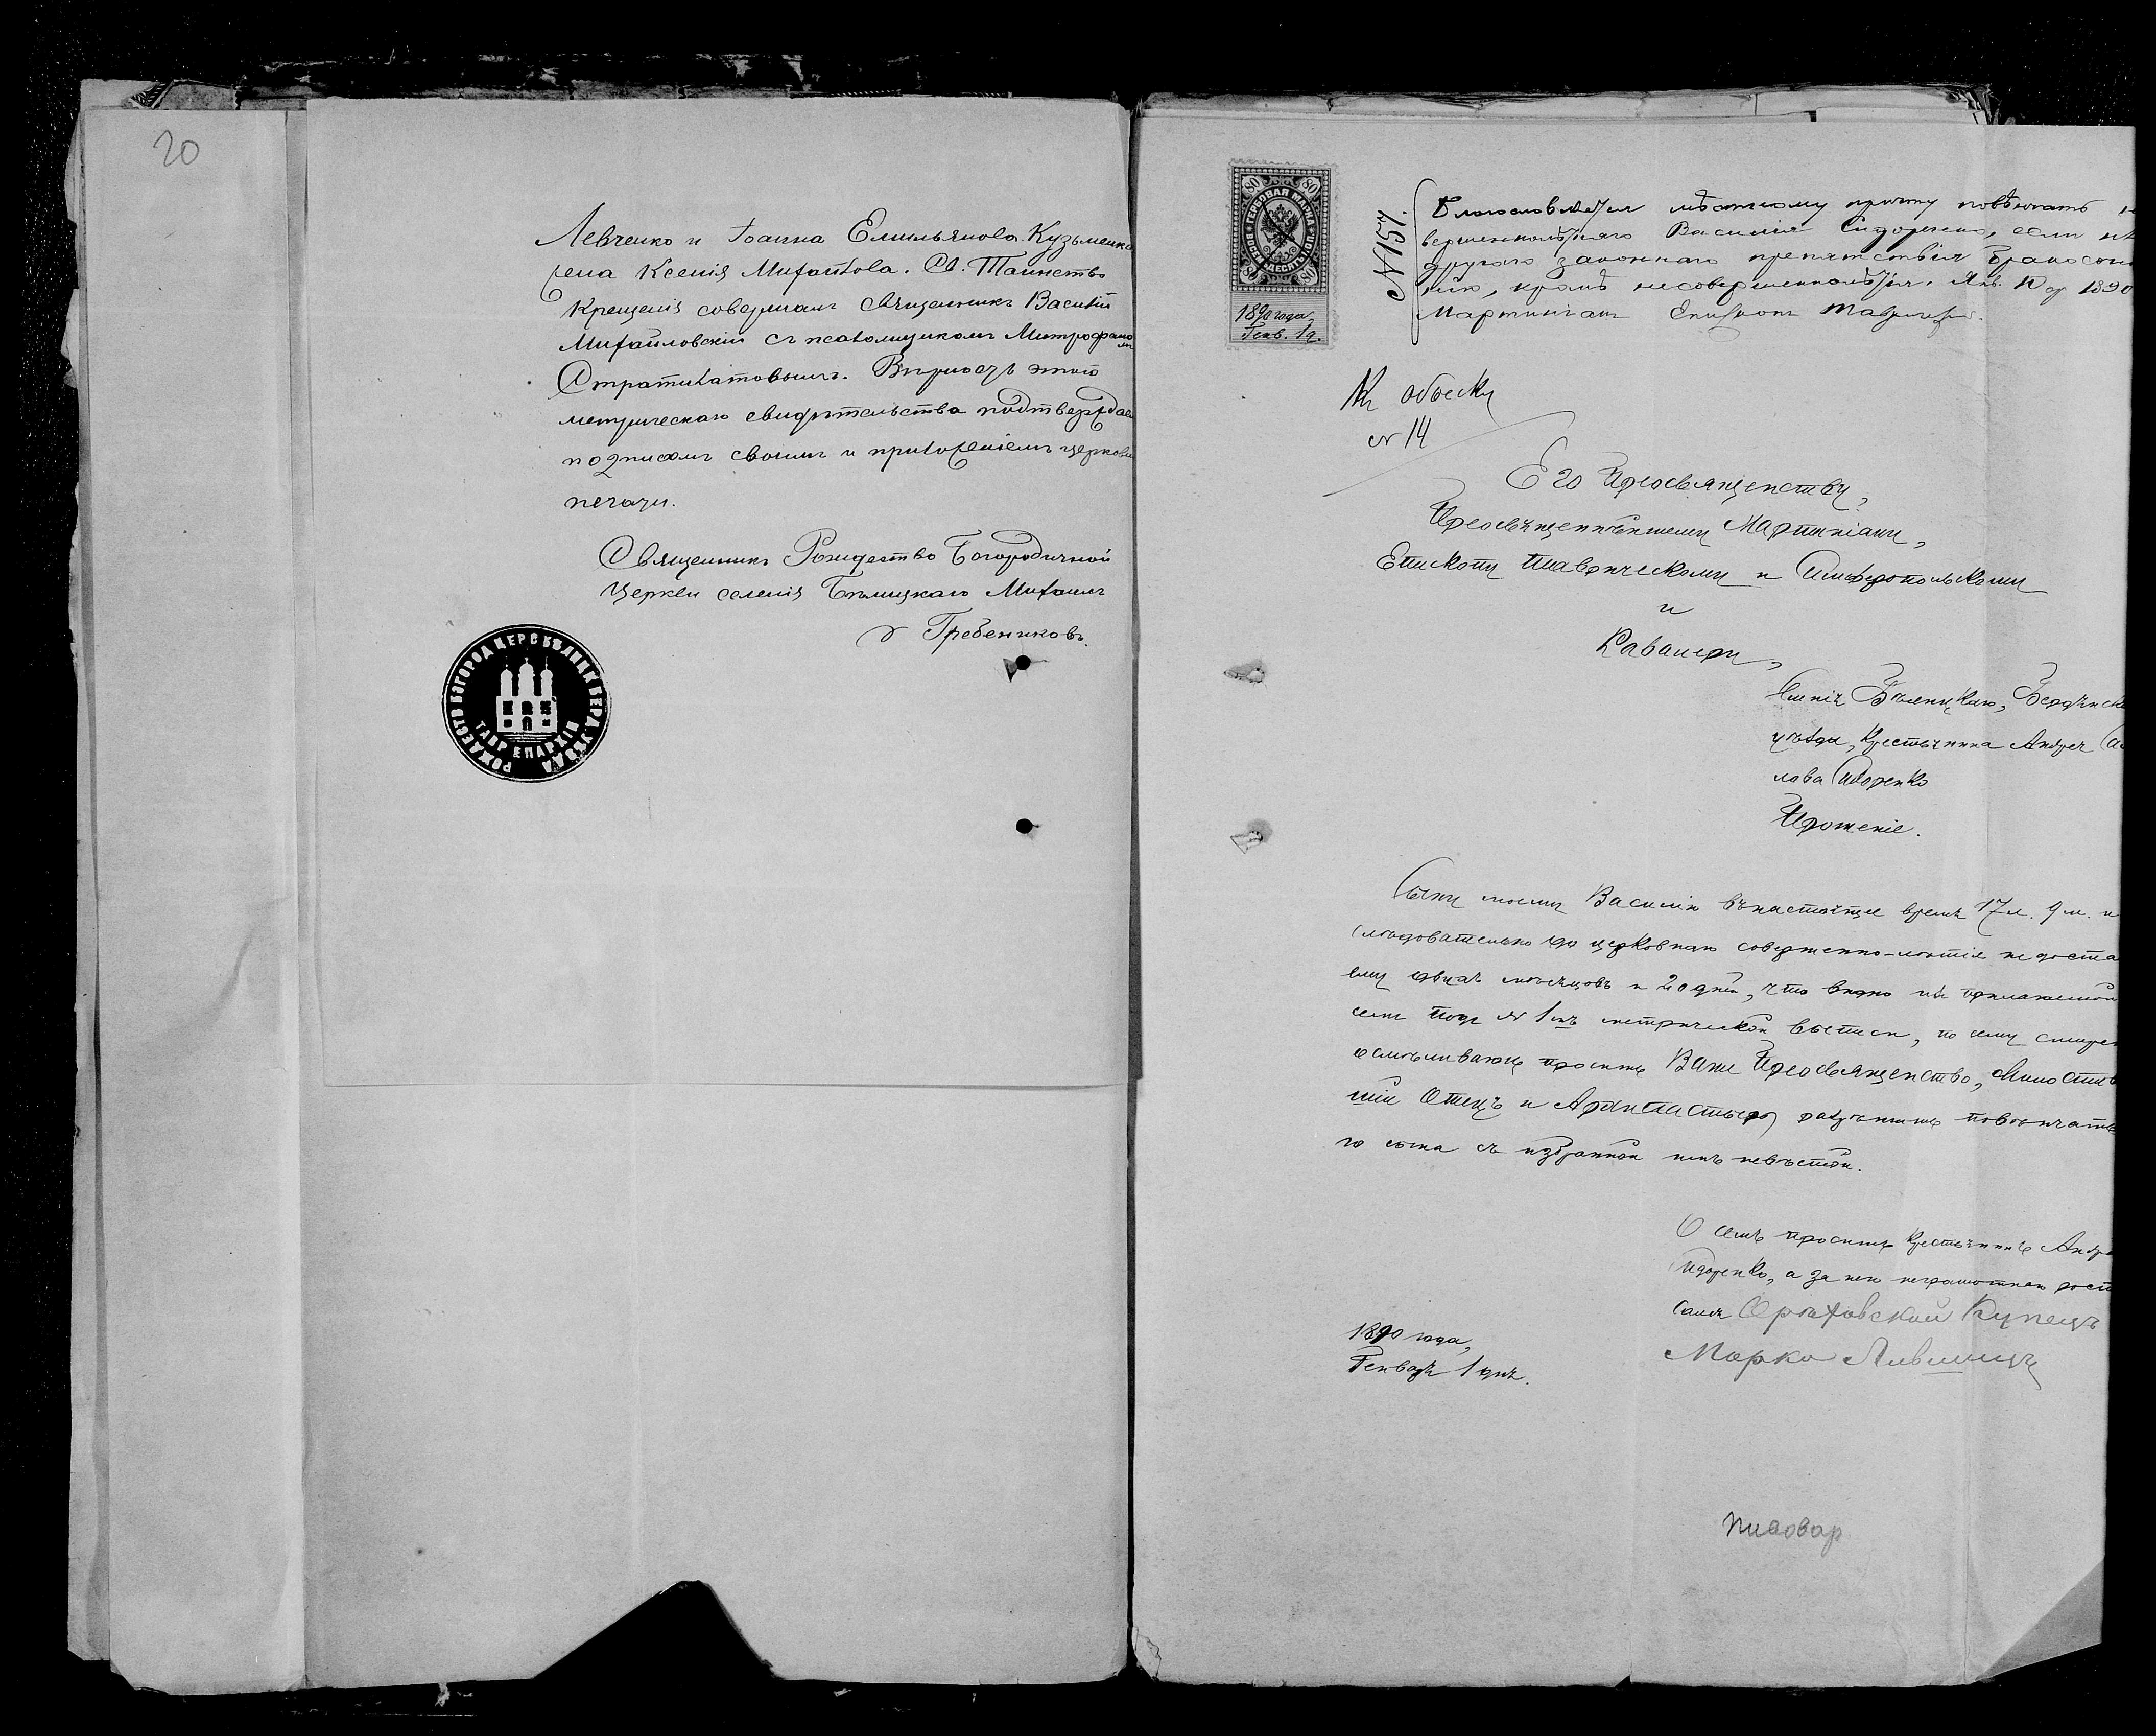 20
Левченко и Іоанна Емильянова Кузьменко
жена Ксенія Михайлова. Св. Таинство
Крещенія совершалъ Священникъ Василій
Михайловскій съ псаломщикомъ Митрофаномъ
Стратилатовымъ. Вѣрность этого
метрическаго свидѣтельства подтверждаю
подписомъ своимъ и приложеніемъ церковн
печати.
Священникъ Рождество Богородичной
Церкви селенія Бѣлицкаго Михаилъ
Гребениковъ.
РОЖДЕСТВ БОГОРОД ЦЕРС БѢЛИЦК БЕРД УѢЗДА
ТАВР ЕПАРХІИ
80 80
ГЕРБОВАЯ МАРКА ВОСЕМЬДЕСЯТЪ КОП.
80 80
1890 года,
Генв. 1 д.
№ 157.
Благословляется мѣстному причту повѣнчать н
вершеннолѣтняго Василія Сидоренко, если нѣ
другого законнаго препятствія бракосоч
нію, кромѣ несовершеннолѣтія. Янв. 10 д 1890
Мартиніанъ Епископъ Таврическ
Къ обыску
№ 14
Его Преосвященству,
Преосвященнѣйшему Мартиніану,
Епископу Таврическому и Симферопольскому
и
Кавалеру,
Селенія Бѣлицкаго, Бердянска
уѣзда, Крестьянина Андрея Са
лова Сидоренко
Прошеніе.
Сыну моему Василію въ настоящее время 17 л. 9 м. и
слѣдовательно до церковнаго совершенно-лѣтія недоста
ему двухъ мѣсяцовъ и 20 дней, что видно изъ приложенной
семъ подъ № 1мъ метрической выписи, по сему смирен
осмѣливаюсь просить Ваше Преосвященство, Милостив
шій Отецъ и Архипастырь, разрѣшить повѣнчать
го сына съ избранной имъ невѣстой.
О семъ проситъ Крестьянинъ Андре
Сидоренко, а за него неграмотнаго росп
сался Орѣховской Купецъ
Марко Лившицъ
1890 года,
Генваря 1 дня.
Пивовар